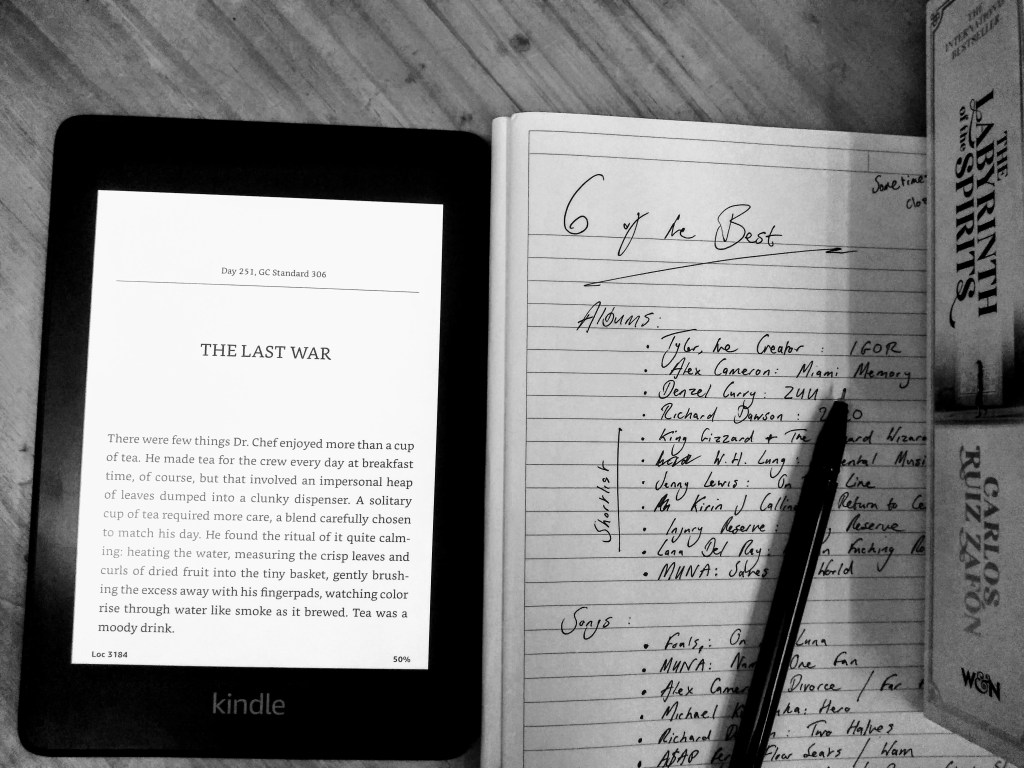 Day 251, GC Standard 306
THE LAST WAR
There were few things Dr. Chef enjoyed more than a cup
of tea. He made tea for the crew every day at breakfast
time, of course, but that involved an impersonal heap
of leaves dumped into a clunky dispenser. A solitary
cup of tea required more care, a blend carefully chosen
to match his day. He found the ritual of it quite calm-
ing: heating the water, measuring the crisp leaves and
curls of dried fruit into the tiny basket, gently brush-
ing the excess away with his fingerpads, watching color
rise through water like smoke as it brewed. Tea was a
moody drink.
Loc 3184
50%
kindle
6 of the Best
Albums:
• Tyler, the Creator : IGOR
• Alex Cameron: Miami Memory
• Denzel Curry: ZUU
• Richard Dawson :
Shortlist
• King Gizzard + The Wizard
• W.H. Lung :
• Jenny Lewis: On Line
• Kirin J Return to
• Injury Reserve : Reserve
• Lana Del Rey: Fucking
• MUNA: Saves World
Songs :
• Foals: On Luna
• MUNA: One Fan
• Alex Divorce / Far
• Michael Hero
• Richard Two Halves
• A$AP Floor Seats / Wam
THE
INTERNATIONAL
BESTSELLER
THE
LABYRINTH
of the SPIRITS
CARLOS
RUIZ ZAFÓN
W&N